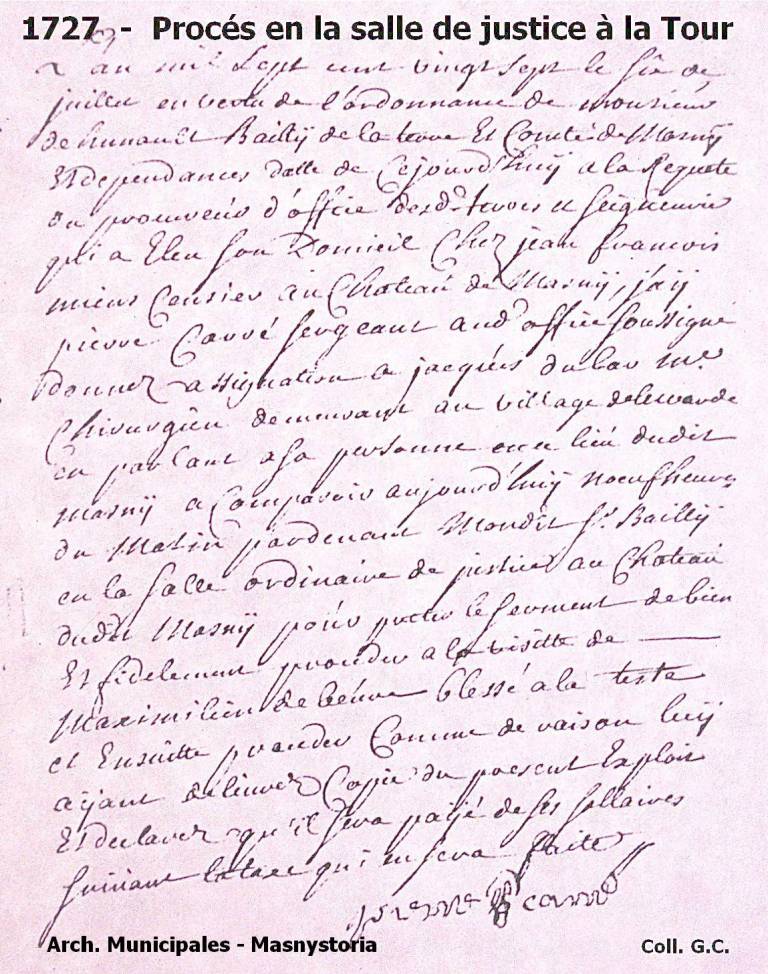 1727 - Procés en la salle de justice à la Tour
L an mil Sept cent vingt Sept le Six de
juillet en vertu de l'ordonnance de monsieur
de hunault Bailly de la terre Et Comté de Masny
Et dependances datte de Cejourd'huy a la Requete
du procureur d'office desd. terres et Seigneurie
qui a Eleu Son Domicil Chez jean francois
Censier au Chateau de Masny, j'aÿ
pierre Carré Sergeant aud. office Soussigné
donnez assignation a jacques du lar me
Chirurgien demeurant au village delewarde
en parlant a Sa personne en ce lieu dudit
Masny a Comparoir aujourd'huy noeuf heures
du Matin pardevant Mondit Sr. Bailly
en la Salle ordinaire de justice au Chateau
dudit Masny pour preter le Serment de bien
Et fidelement proceder a la visitte de
Maximilien de blessé a la teste
et Ensuitte proceder Comme de raison luy
ayant delivrez Copie du present Exploit
Et declarez qu'il Sera payé de Ses Sallaires
Suivant la taxe qui en Sera faite
pierre Carré
Arch. Municipales - Masnystoria
Coll. G.C.